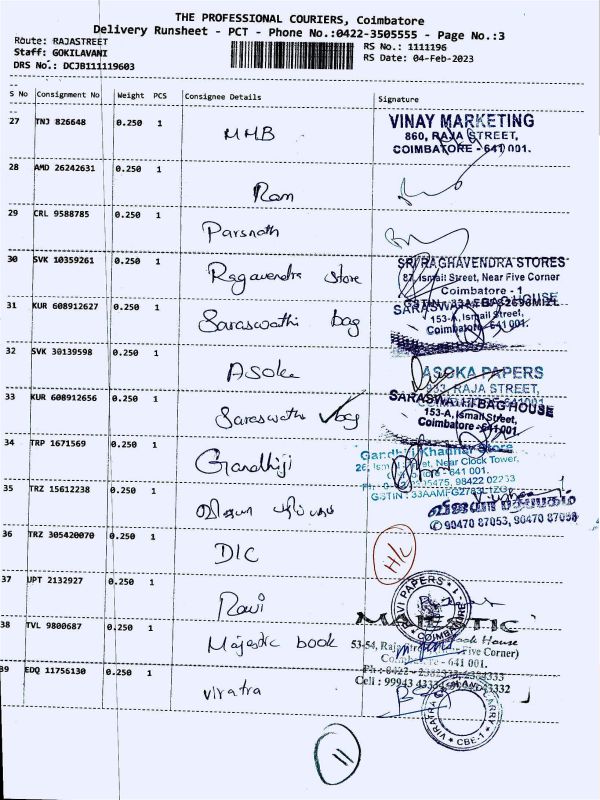 THE PROFESSIONAL COURIERS, Coimbatore
Delivery Runsheet - PCT - Phone No.:0422-3505555 - Page No.:3
Route: RAJASTREET
RS No.: 1111196
Staff: GOKILAVANI
RS Date: 04-Feb-2023
DRS No.: DCJB111119603
S No Consignment No Weight PCS Consignee Details Signature
27 TNJ 826648 0.250 1 MMB
VINAY MARKETING
860, RAJA STREET,
COIMBATORE - 641 001.
28 AMD 26242631 0.250 1 Ram
29 CRL 9588785 0.250 1 Parsnath
30 SVK 10359261 0.250 1 Ragavendra store
SRI RAGHAVENDRA STORES
87, Ismail Street, Near Five Corner
Coimbatore - 1
31 KUR 608912627 0.250 1 Saraswathi bag
SARASWATHI BAG HOUSE
153-A, Ismail Street,
Coimbatore - 641 001.
32 SVK 30139598 0.250 1 Asoka
ASOKA PAPERS
RAJA STREET,
33 KUR 608912656 0.250 1 Saraswathi bag
SARASWATHI BAG HOUSE
153-A, Ismail Street,
Coimbatore - 641 001.
34 TRP 1671569 0.250 1 Gandhiji
Gandhiji Khadhar Store
26, Ismail Street, Near Clock Tower,
- 641 001.
98422 02233
35 TRZ 15612238 0.250 1
விஜயா பதிப்பகம்
✆ 90470 87053, 90470 87058
36 TRZ 305420070 0.250 1 DLC
H/L
37 UPT 2132927 0.250 1 Ravi
RAVI PAPERS
COIMBATORE - 1
38 TVL 9800687 0.250 1 Majestic book
MAJESTIC
Book House
53-54, Raja Street, (Near Five Corner)
Coimbatore - 641 001.
39 EDQ 11756130 0.250 1 viratra
VIRATRA
CARRY
CBE-1
11